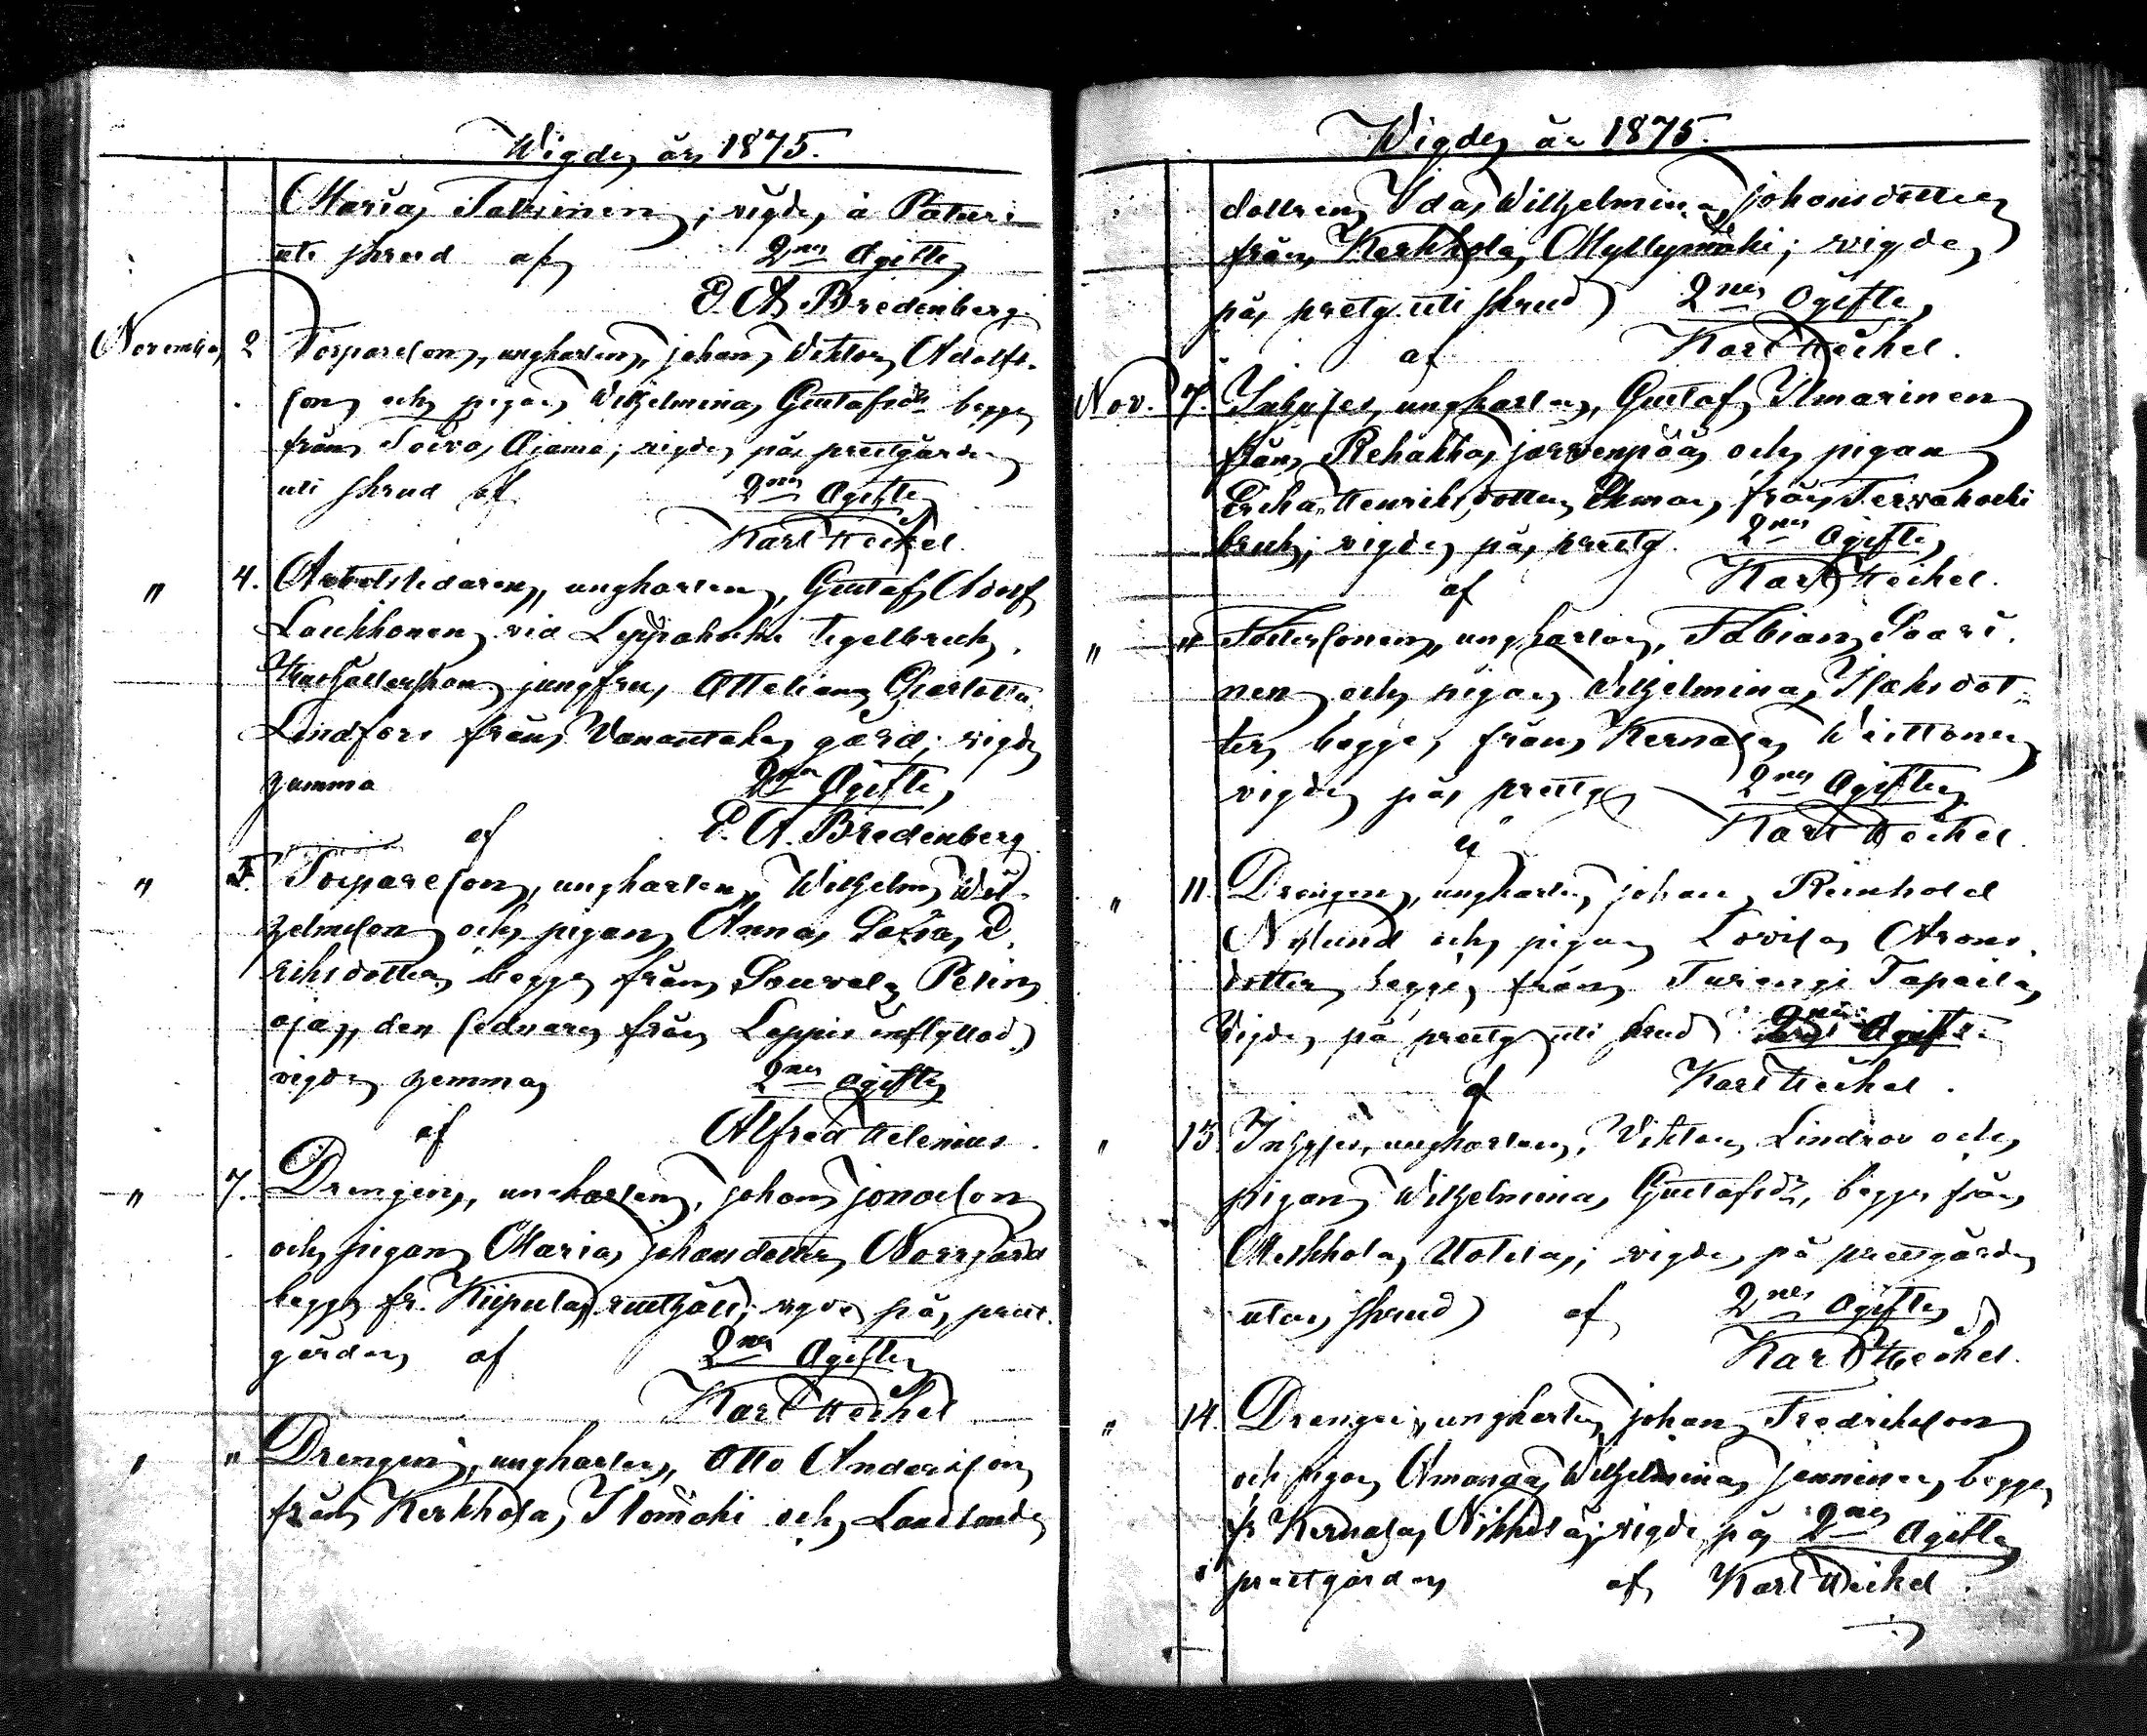 Wigde år 1875.
Maria Talvinen; vigde å Patari
uti skrud af 2ne Ogifte
E. A. Bredenberg.
November 2 Torpareson, ungkarlen, Johan Viktor Adolfs-
son och pigan Wilhelmina Gustafsdr begge
från Toivo, Ajama; vigde på prestgården
uti skrud af 2ne Ogifte
Karl Heikel.
" 4. Arbetsledaren, ungkarlen, Gustaf Adolf
Laukkonen vid Leppäkoski tegelbruk,
Hushållerskan jungfru Ottiliana Charlotta
Lindfors från Vanantaka gård; vigde
hemma 2ne Ogifte
af E. A. Bredenberg.
" 5. Torpareson, ungkarlen, Wilhelm Wil-
helmsson och pigan Anna Sofia E-
riksdotter, begge från Sauvala Pelin
oja, den sednare från Loppis inflyttad,
vigde hemma 2ne ogifte
af Alfred Helenius.
" 7. Drengen, ungkarlen, Johan Jonasson
och pigan Maria Johansdotter Norrgård
begge fr. Kiipula rusthåll; vigde på prest-
gården af 2ne Ogifte
Karl Heikel
" " Drengen, ungkarlen, Otto Andersson
från Kerkkola, Ilomäki och Landbonde
Wigde år 1875.
dottren Ida Wilhelmina Johansdotter
från Kerkkola, Myllymäki; vigde
på prestg. uti skrud 2ne Ogifte
af Karl Heikel.
Nov. 7. Inhyses, ungkarlen, Gustaf Ilmarinen
från Rehakka, Järvenpää och pigan
Erika Henriksdotter Ekman från Tervakoski
bruk; vigde på prestg. 2ne Ogifte
af Karl Heikel.
" " Fostersonen, ungkarlen, Fabian Saari-
nen och pigan Wilhelmina Isaksdot-
ter, begge från Kernala, Wiittonen
vigde på prestg. 2ne Ogifte
af Karl Heikel.
" 11. Drengen, ungkarlen Johan Reinhold
Nylund och pigan Lovisa Arons-
dotter begge från Turengi Tapaila
Vigde på prestg uti skrud 2ne Ogifte
af Karl Heikel.
" 13 Inhyses, ungkarlen, Viktor Lindrov och
pigan Wilhelmina Gustafsdr, begge från
Merkkola, Uotila; vigde på prestgården
utan skrud af 2ne Ogifte
Karl Heikel.
" 14. Drengen, ungkarlen Johan Fredriksson
och pigan Amanda Wilhelmina Janninen, begge
fr Kernala, Nikkilä; vigde på 2ne Ogifte
prestgården af Karl Heikel.